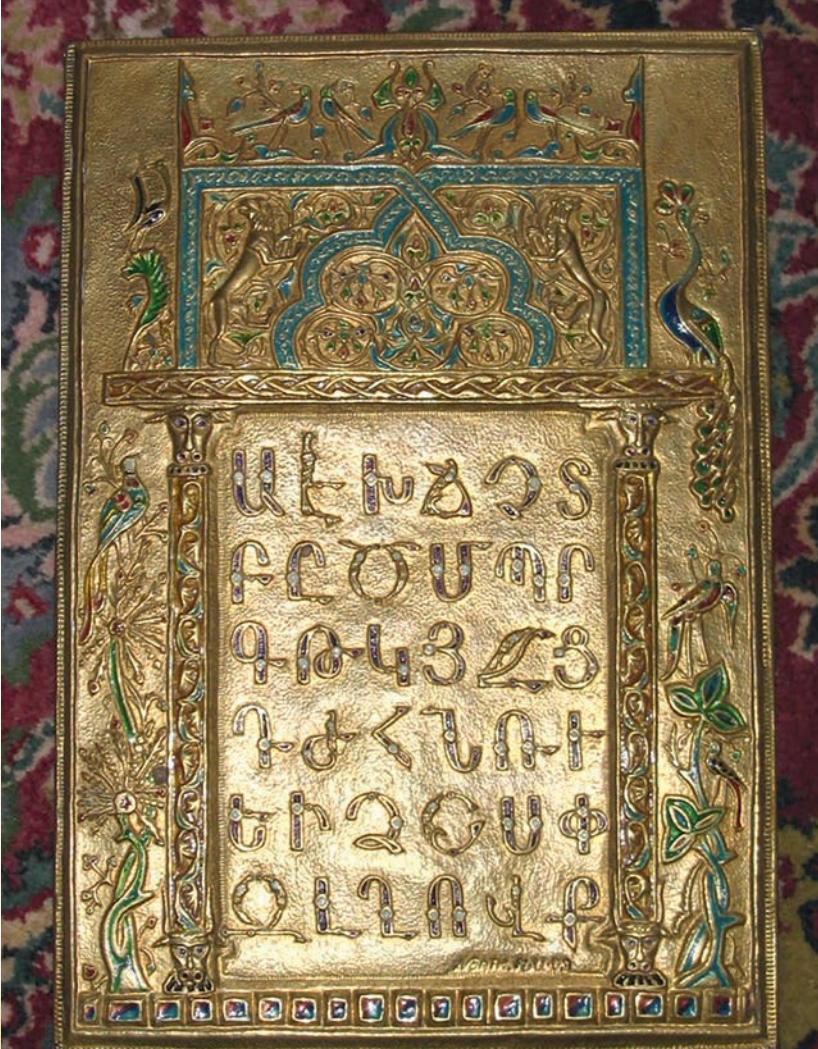 Ա Է Խ Ճ Չ Տ
Բ Ը Ծ Մ Պ Ր
Գ Թ Կ Յ Ջ Ց
Դ Ժ Հ Ն Ռ Ւ
Ե Ի Ձ Շ Ս Փ
Զ Լ Ղ Ո Վ Ք